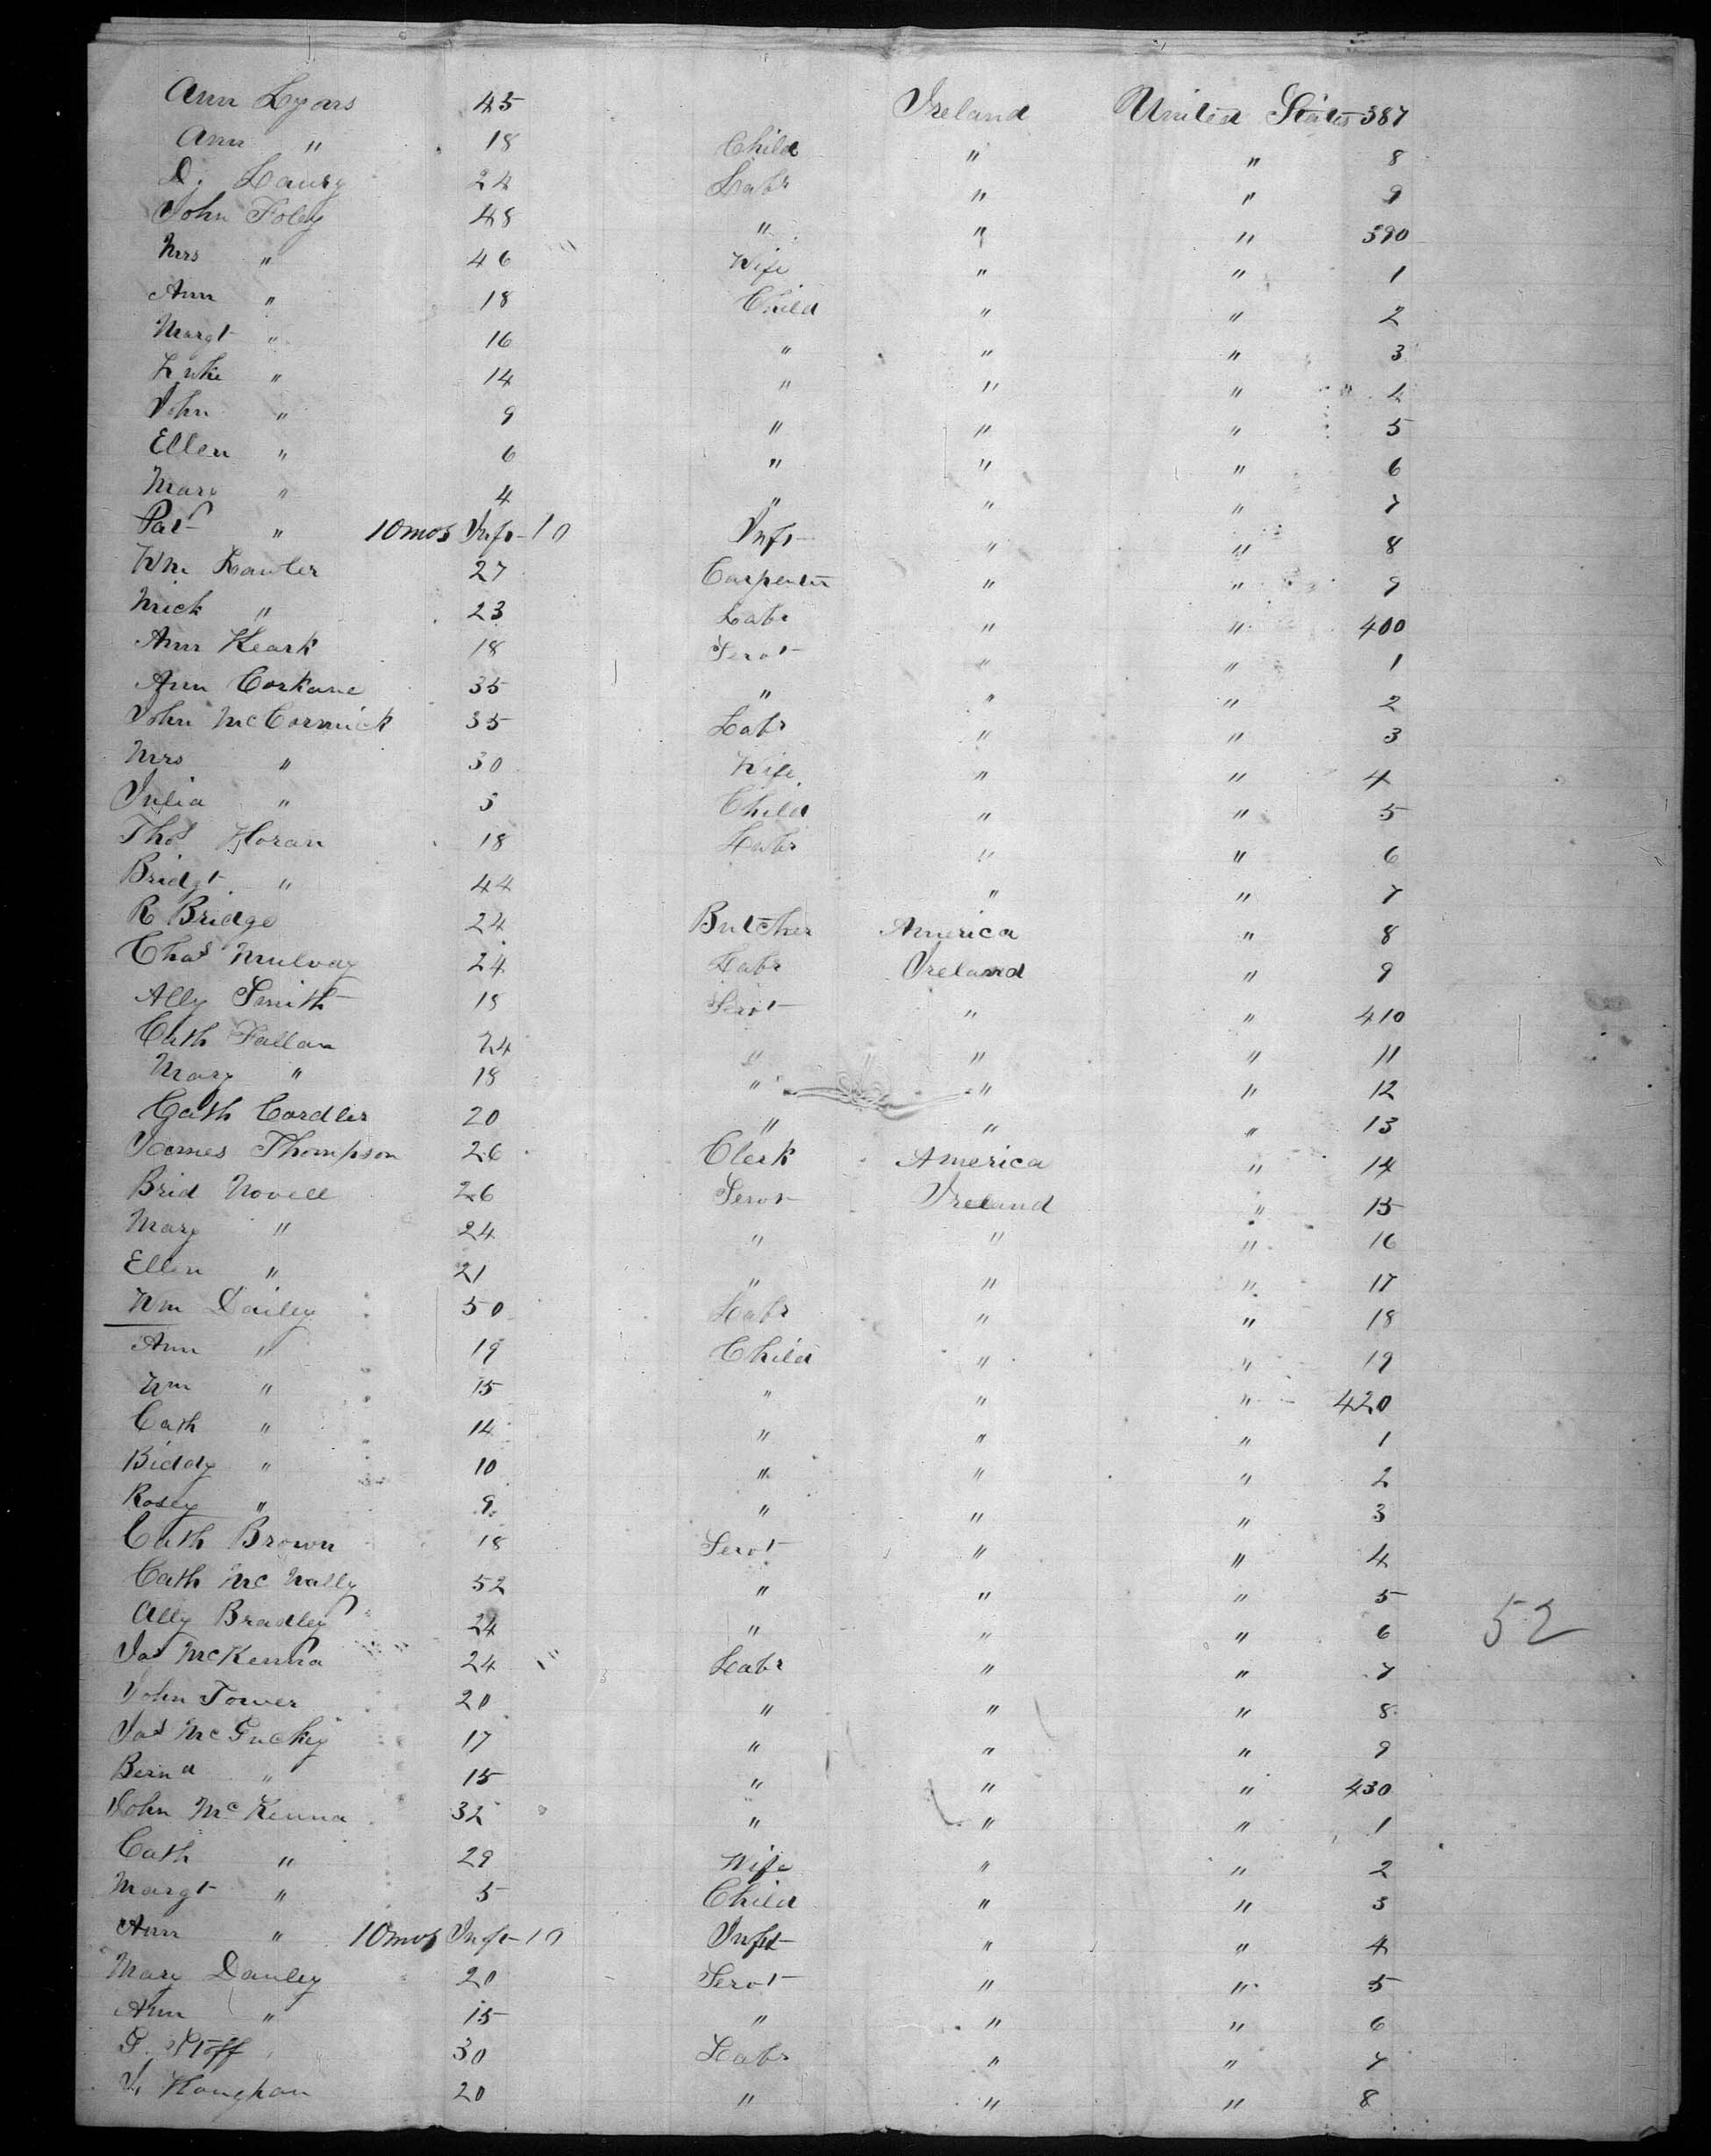 Ann Lyons 45 Ireland United States 387
Ann " 18 Child " " 8
D. Laury 24 Labr " " 9
John Foley 48 " " " 390
Mrs " 46 Wife " " 1
Ann " 18 Child " " 2
Margt " 16 " " " 3
Luke " 14 " " " 4
John " 9 " " " 5
Ellen " 6 " " " 6
Mary " 4 " " " 7
Pat " 10mos Inft 10 Inft " " 8
Wm Lawler 27 Carpenter " " 9
Mick " 23 Labr " " 400
Ann Keark 18 Servt " " 1
Ann Corkane 35 " " " 2
John McCormick 35 Labr " " 3
Mrs " 30 Wife " " 4
Julia " 5 Child " " 5
Thos Horan 18 Labr " " 6
Bridgt " 44 " " 7
R Bridge 24 Butcher America " 8
Chas Mulvay 24 Labr Ireland " 9
Ally Smith 18 Servt " " 410
Cath Fallan 24 " " " 11
Mary " 18 " " " 12
Cath Cordler 20 " " " 13
James Thompson 26 Clerk America " 14
Brid Novell 26 Servt Ireland " 15
Mary " 24 " " " 16
Ellen " 21 " " " 17
Wm Dailey 50 Labr " " 18
Ann " 19 Child " " 19
Wm " 15 " " " 420
Cath " 14 " " " 1
Biddy " 10 " " " 2
Rosey " 9 " " " 3
Cath Brown 18 Servt " " 4
Cath McNally 52 " " " 5
Ally Bradley 24 " " " 6
52
Jas McKenna 24 Labr " " 7
John Tower 20 " " " 8
Jas McGuckey 17 " " " 9
Bernd " 15 " " " 430
John McKenna 32 " " " 1
Cath " 29 Wife " " 2
Margt " 5 Child " " 3
Ann " 10mos Inft 10 Inft " " 4
Mary Danley 20 Servt " " 5
Ann " 15 " " " 6
30 Labr " " 7
J. Houghan 20 " " " 8